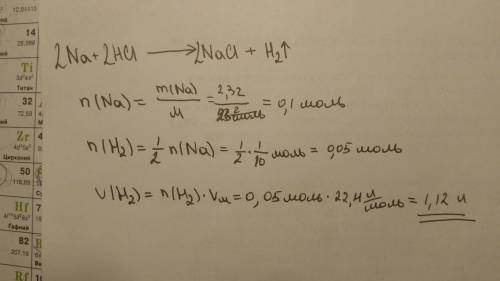 12,01115
14
28,086
Ti
3d²4s²
Титан
32
72,59
Zr
4d²5s²
Цирконий
50
118,69
Hf
4f¹⁴5d²6s²
Гафний
82
207,19
Rf
2Na + 2HCl ⟶ 2NaCl + H₂↑
n(Na) = m(Na)/M = 2,3г/23 г/моль = 0,1 моль
n(H₂) = 1/2 n(Na) = 1/2 · 1/10 моль = 0,05 моль
V(H₂) = n(H₂) · Vм = 0,05 моль · 22,4 л/моль = 1,12 л